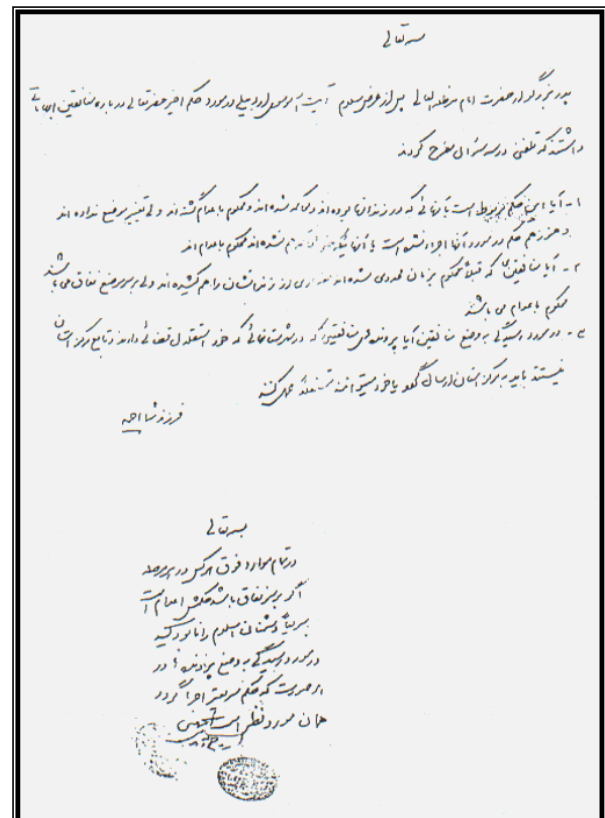 بسمه تعالی
پدر بزرگوار حضرت امام مدظله العالی پس از عرض سلام آیت الله موسوی اردبیلی در مورد حکم اخیر حضرتعالی درباره منافقین ابهاماتی
داشتند که تلفنی در سه سؤال مطرح کردند
۱- آیا این حکم مربوط است به آنهائی که در زندانها بوده‌اند و محاکمه شده‌اند و محکوم به اعدام گشته‌اند ولی تغییر موضع نداده‌اند
و هنوز هم حکم در مورد آنها اجرا نشده است یا آنهائیکه حتی محاکمه هم نشده‌اند محکوم به اعدام‌اند
۲- آیا منافقین که قبلاً محکوم بزمان محدودی شده‌اند مقداری از زندانشان را هم کشیده‌اند ولی بر سر موضع نفاق می‌باشند
محکوم به اعدام می‌باشند
۳- در مورد رسیدگی به وضع منافقین آیا پرونده‌های منافقینی که در شهرستانهائی که خود استقلال قضائی دارند و تابع مرکز استان
نیستند باید به مرکز استان ارسال گردد یا خود میتوانند مستقلاً عمل کنند
فرزند شما احمد
بسمه تعالی
در تمام موارد فوق هر کس در هر مرحله
اگر بر سر نفاق باشد حکمش اعدام است
سریعاً دشمنان اسلام را نابود کنید
در مورد رسیدگی به وضع پرونده‌ها در
هر صورت که حکم سریعتر اجرا گردد
همان مورد نظر است